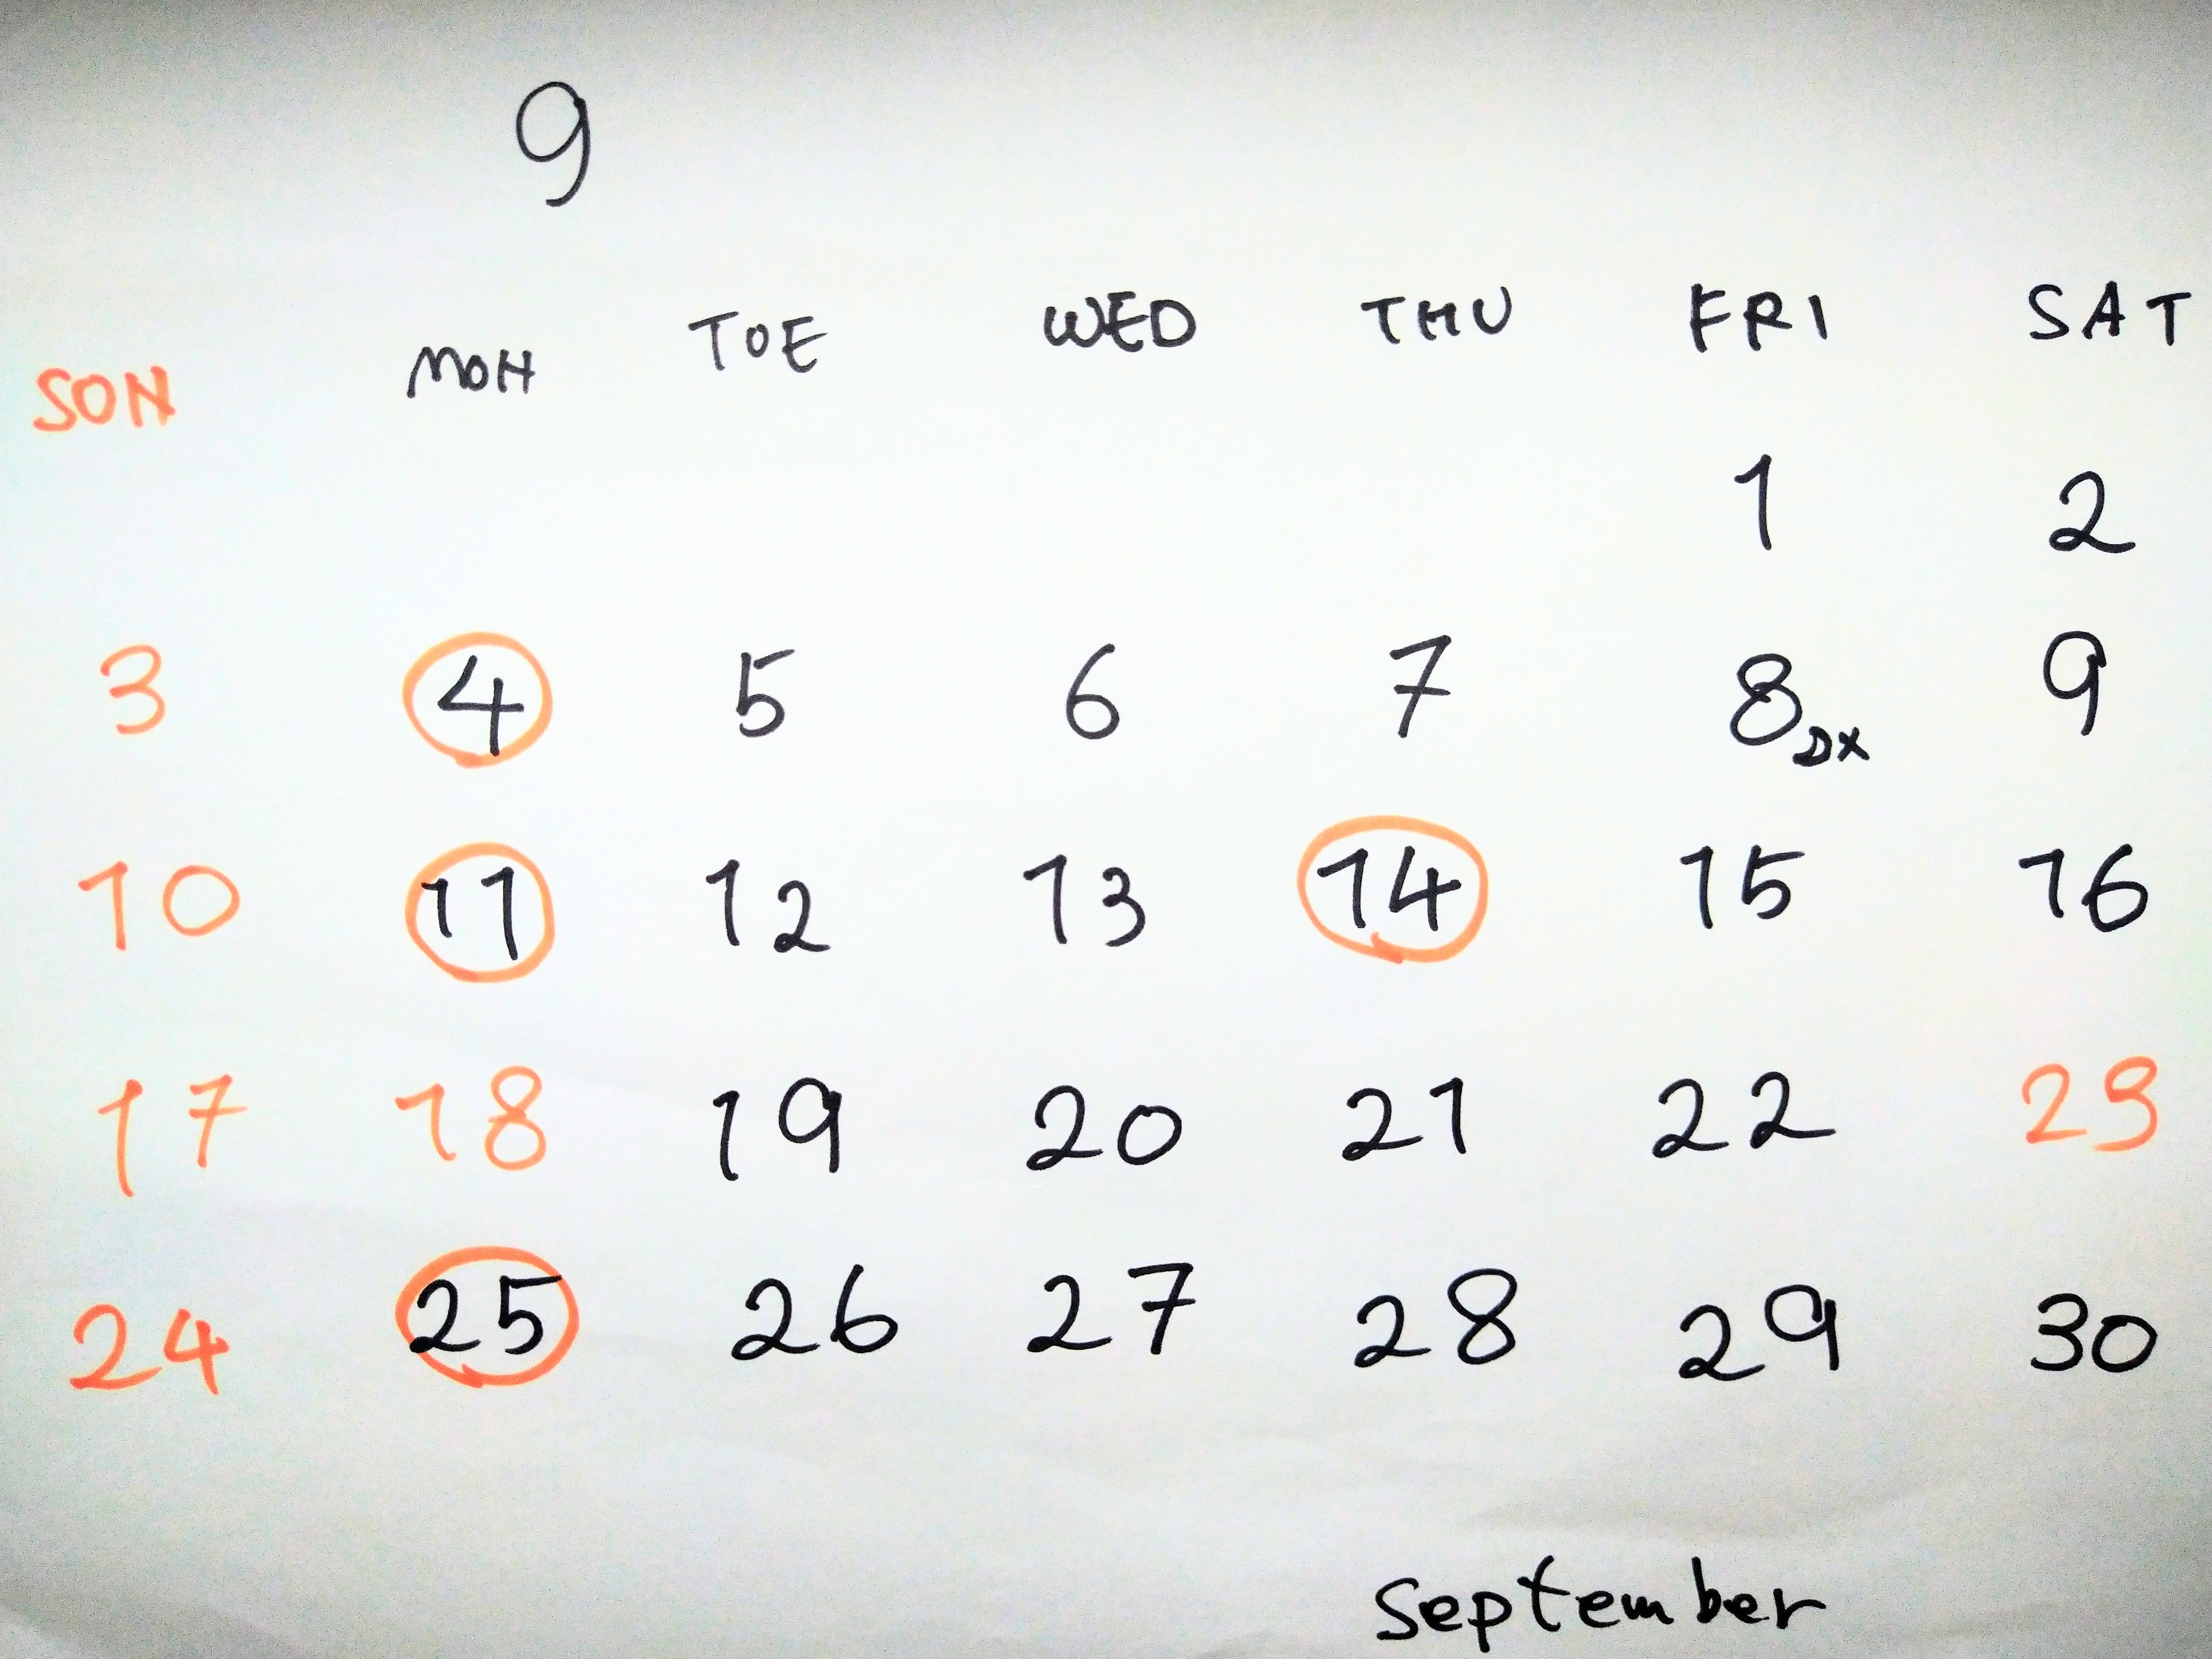 9
SON MOH TOE WED THU FRI SAT
1 2
3 4 5 6 7 8 DX 9
10 11 12 13 14 15 16
17 18 19 20 21 22 23
24 25 26 27 28 29 30
September